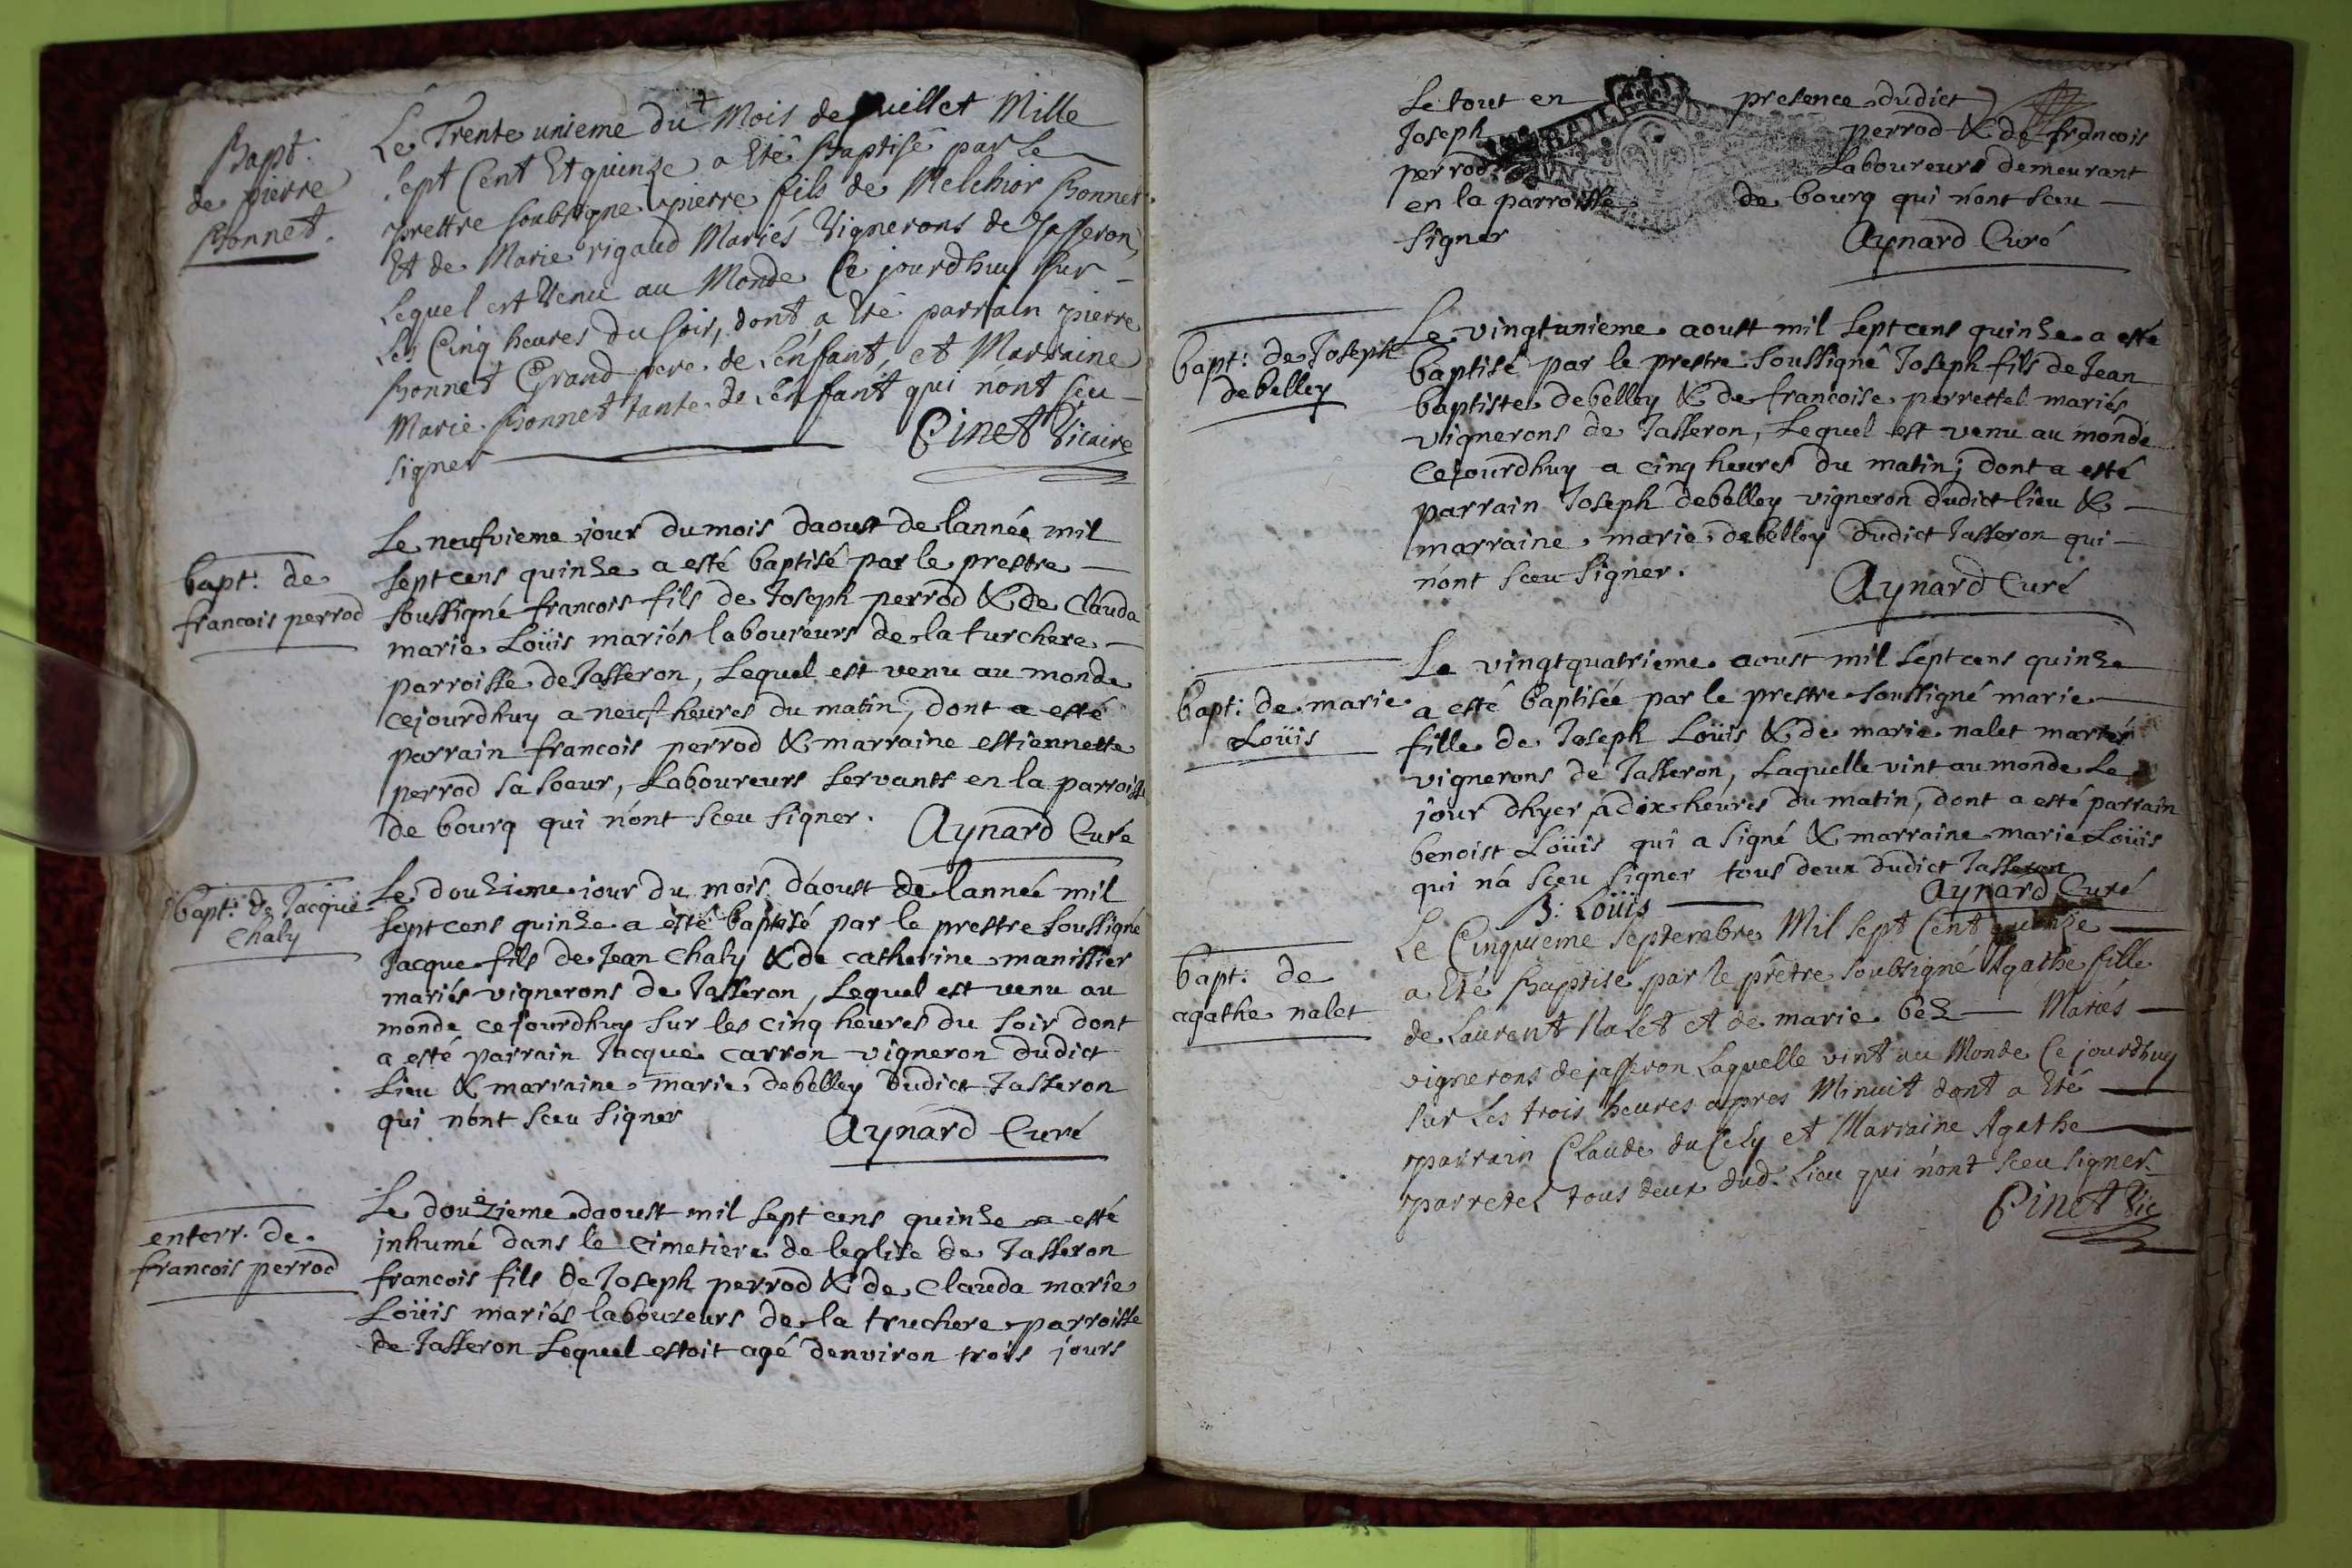 Bapt.
de pierre
Bonnet.
Le Trente unieme du Mois de Juillet Mille
sept Cent Et quinze a Eté Baptisé par Le
prettre soubsigne pierre fils de Melchior Bonnet
Et de Marie rigaud Mariés Vignerons de Jasseron,
Lequel est Venu au Monde Ce jourdhuy sur
Les Cinq heures du soir, dont a Eté parrain pierre
Bonnet Grand pere de Lenfant, et Marraine
Marie Bonnet tante de Lenfant qui n'ont sceu
signer Pinet Vicaire
bapt: de
francois perrod
Le neufvieme jour du mois daoust de lannée mil
sept cens quinze a esté baptisé par le prestre
soussigné francois fils de Joseph perrod & de Clauda
marie Loüis mariés laboureurs de la turchere
parroisse de Jasseron, Lequel est venu au monde
cejourdhuy a neuf heures du matin, dont a esté
parrain francois perrod & marraine estiennette
perrod sa soeur, Laboureurs servants en la parroisse
de bourg qui n'ont sceu signer. Aynard Curé
bapt: de Jacque
Chaly
Le douzieme jour du mois d'aoust de lannée mil
sept cens quinze a esté baptisé par le prestre soussigné
Jacque fils de Jean Chaly & de catherine manissier
mariés vignerons de Jasseron, Lequel est venu au
monde cejourdhuy sur les cinq heures du soir dont
a esté parrain Jacque carron vigneron dudict
Lieu & marraine marie debelley dudict Jasseron
qui n'ont sceu signer Aynard Curé
enterr. de
francois perrod
Le douzieme daoust mil sept cens quinze a esté
inhumé dans le cimetiere de leglise de Jasseron
francois fils de Joseph perrod & de Clauda marie
Loüis mariés laboureurs de la truchere parroisse
de Jasseron Lequel estoit agé denviron trois jours
Le tout en presence dudict
Joseph perrod & de francois
perrod Laboureurs demeurant
en la parroisse de bourg qui n'ont sceu
signer Aynard Curé
bapt: de Joseph
debelley
Le vingtunieme aoust mil sept cens quinze a esté
baptisé par le prestre soussigné Joseph fils de Jean
baptiste debelley & de francoise perrettel mariés
vignerons de Jasseron, Lequel est venu au monde
cejourdhuy a cinq heures du matin; dont a esté
parrain Joseph debelley vigneron dudict lieu &
marraine marie debelley dudict Jasseron qui
n'ont sceu signer. Aynard Curé
bapt: de marie
Loüis
Le vingtquatrieme aoust mil sept cens quinze
a esté baptisée par le prestre soussigné marie
fille de Joseph Loüis & de marie nalet mariés
vignerons de Jasseron, Laquelle vint au monde Le
jour dhyer a dix heures du matin, dont a esté parrain
benoist Loüis qui a signé & marraine marie Loüis
qui n'a sceu signer tous deux dudict Jasseron
B: Loüis Aynard Curé
bapt: de
agathe nalet
Le Cinquieme septembre Mil sept Cent quinze
a Eté Baptise par le prêtre soubsigné Agathe fille
de Laurent Nalet et de marie béz Mariés
vignerons de jasseron Laquelle vint au Monde Ce jourdhuy
sur Les trois heures apres Minuit dont a Eté
parrain Claude du Cely et Marraine Agathe
parretel tous deux dud. Lieu qui n'ont sceu signer.
Pinet Vic